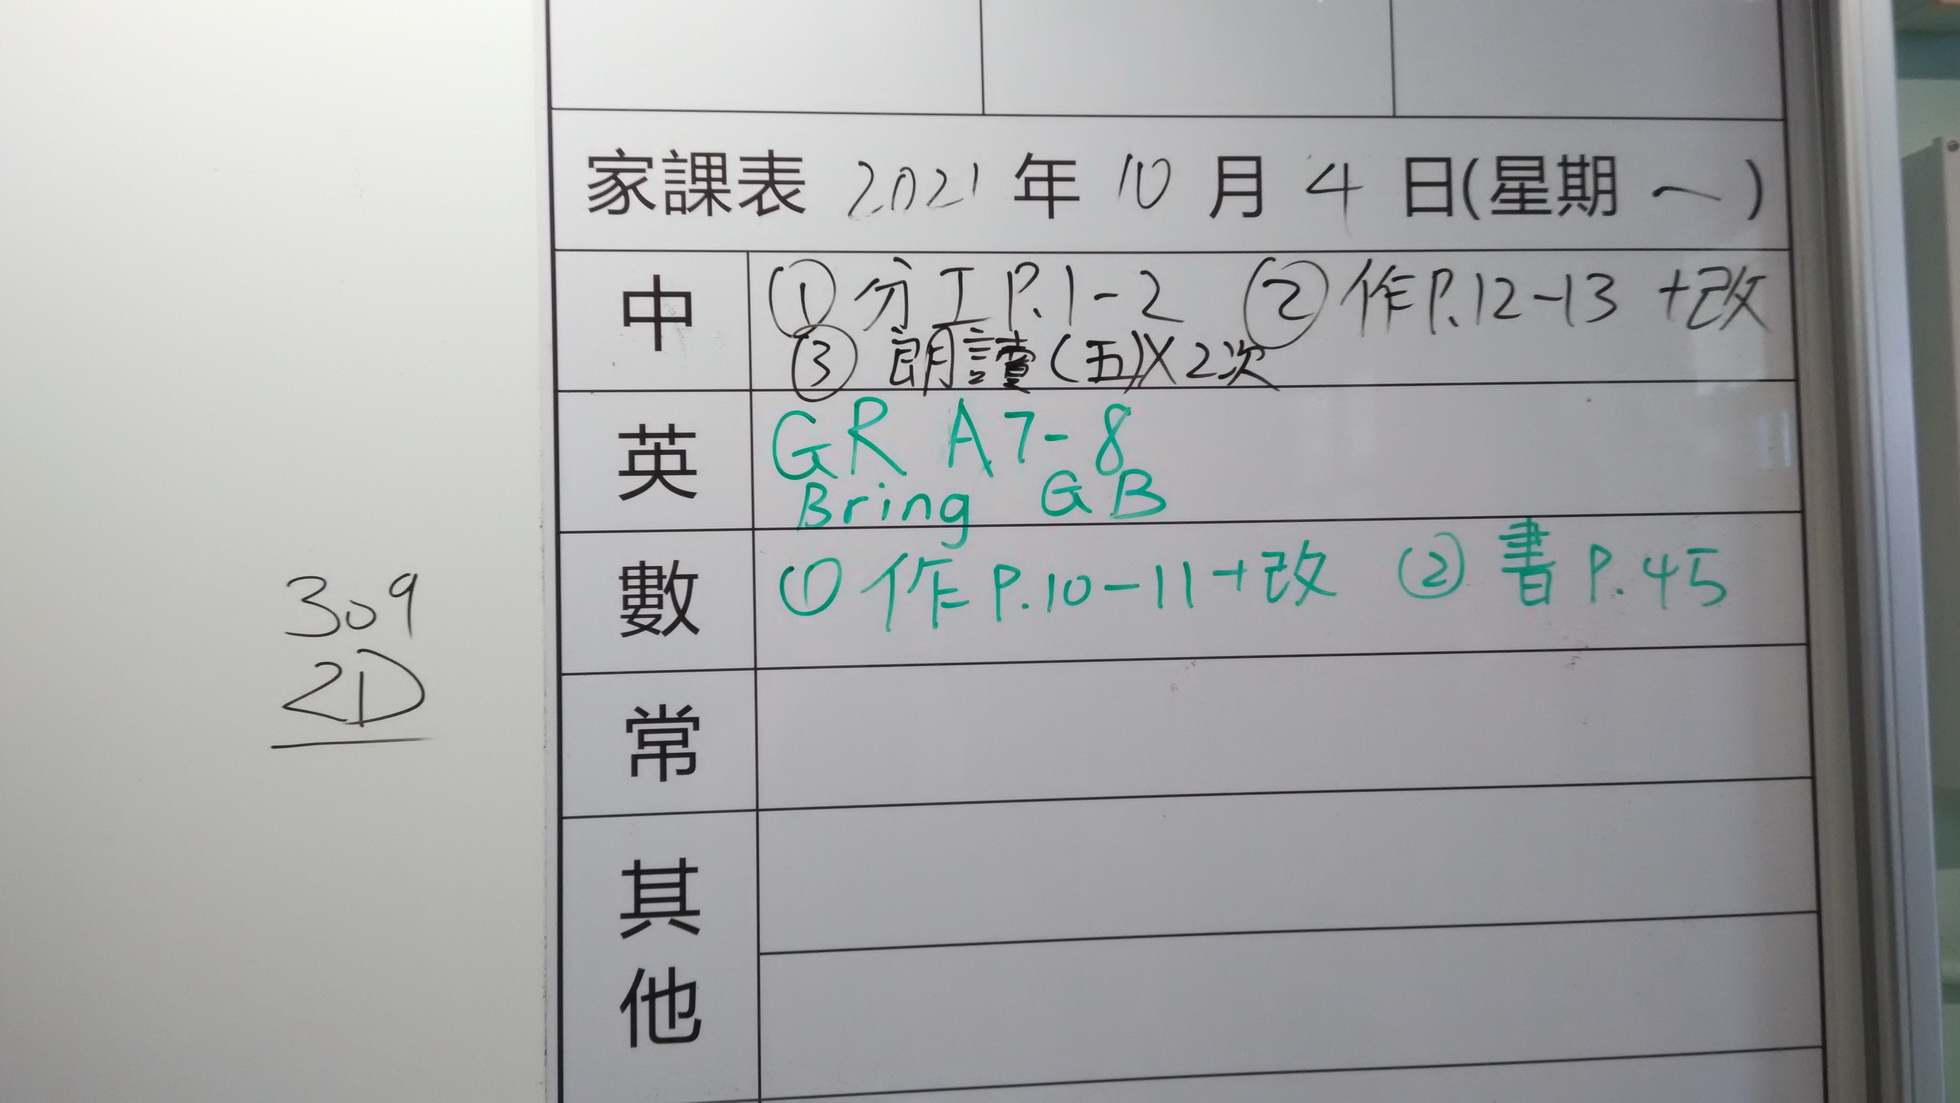 家課表 2021 年 10 月 4 日(星期 一)
中 ① 分工 P.1-2 ② 作P.12-13 +改
③ 朗讀(五)X2次
英 GR A7-8
Bring GB
數 ① 作 P.10-11+改 ② 書 P.45
常
其他
309
2D